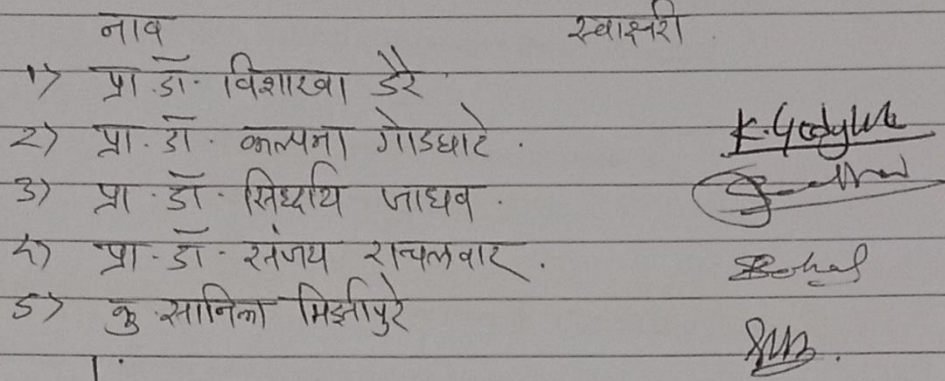 नाव स्वाक्षरी
१) प्रा. डॉ. विशाखा डेरे
२) प्रा. डॉ. कल्पना गोडघाटे. K. Godghate
३) प्रा. डॉ. सिध्दार्थ जाधव.
४) प्रा. डॉ. संजय राचलवार.
५) कु. सानिका मिर्झापुरे